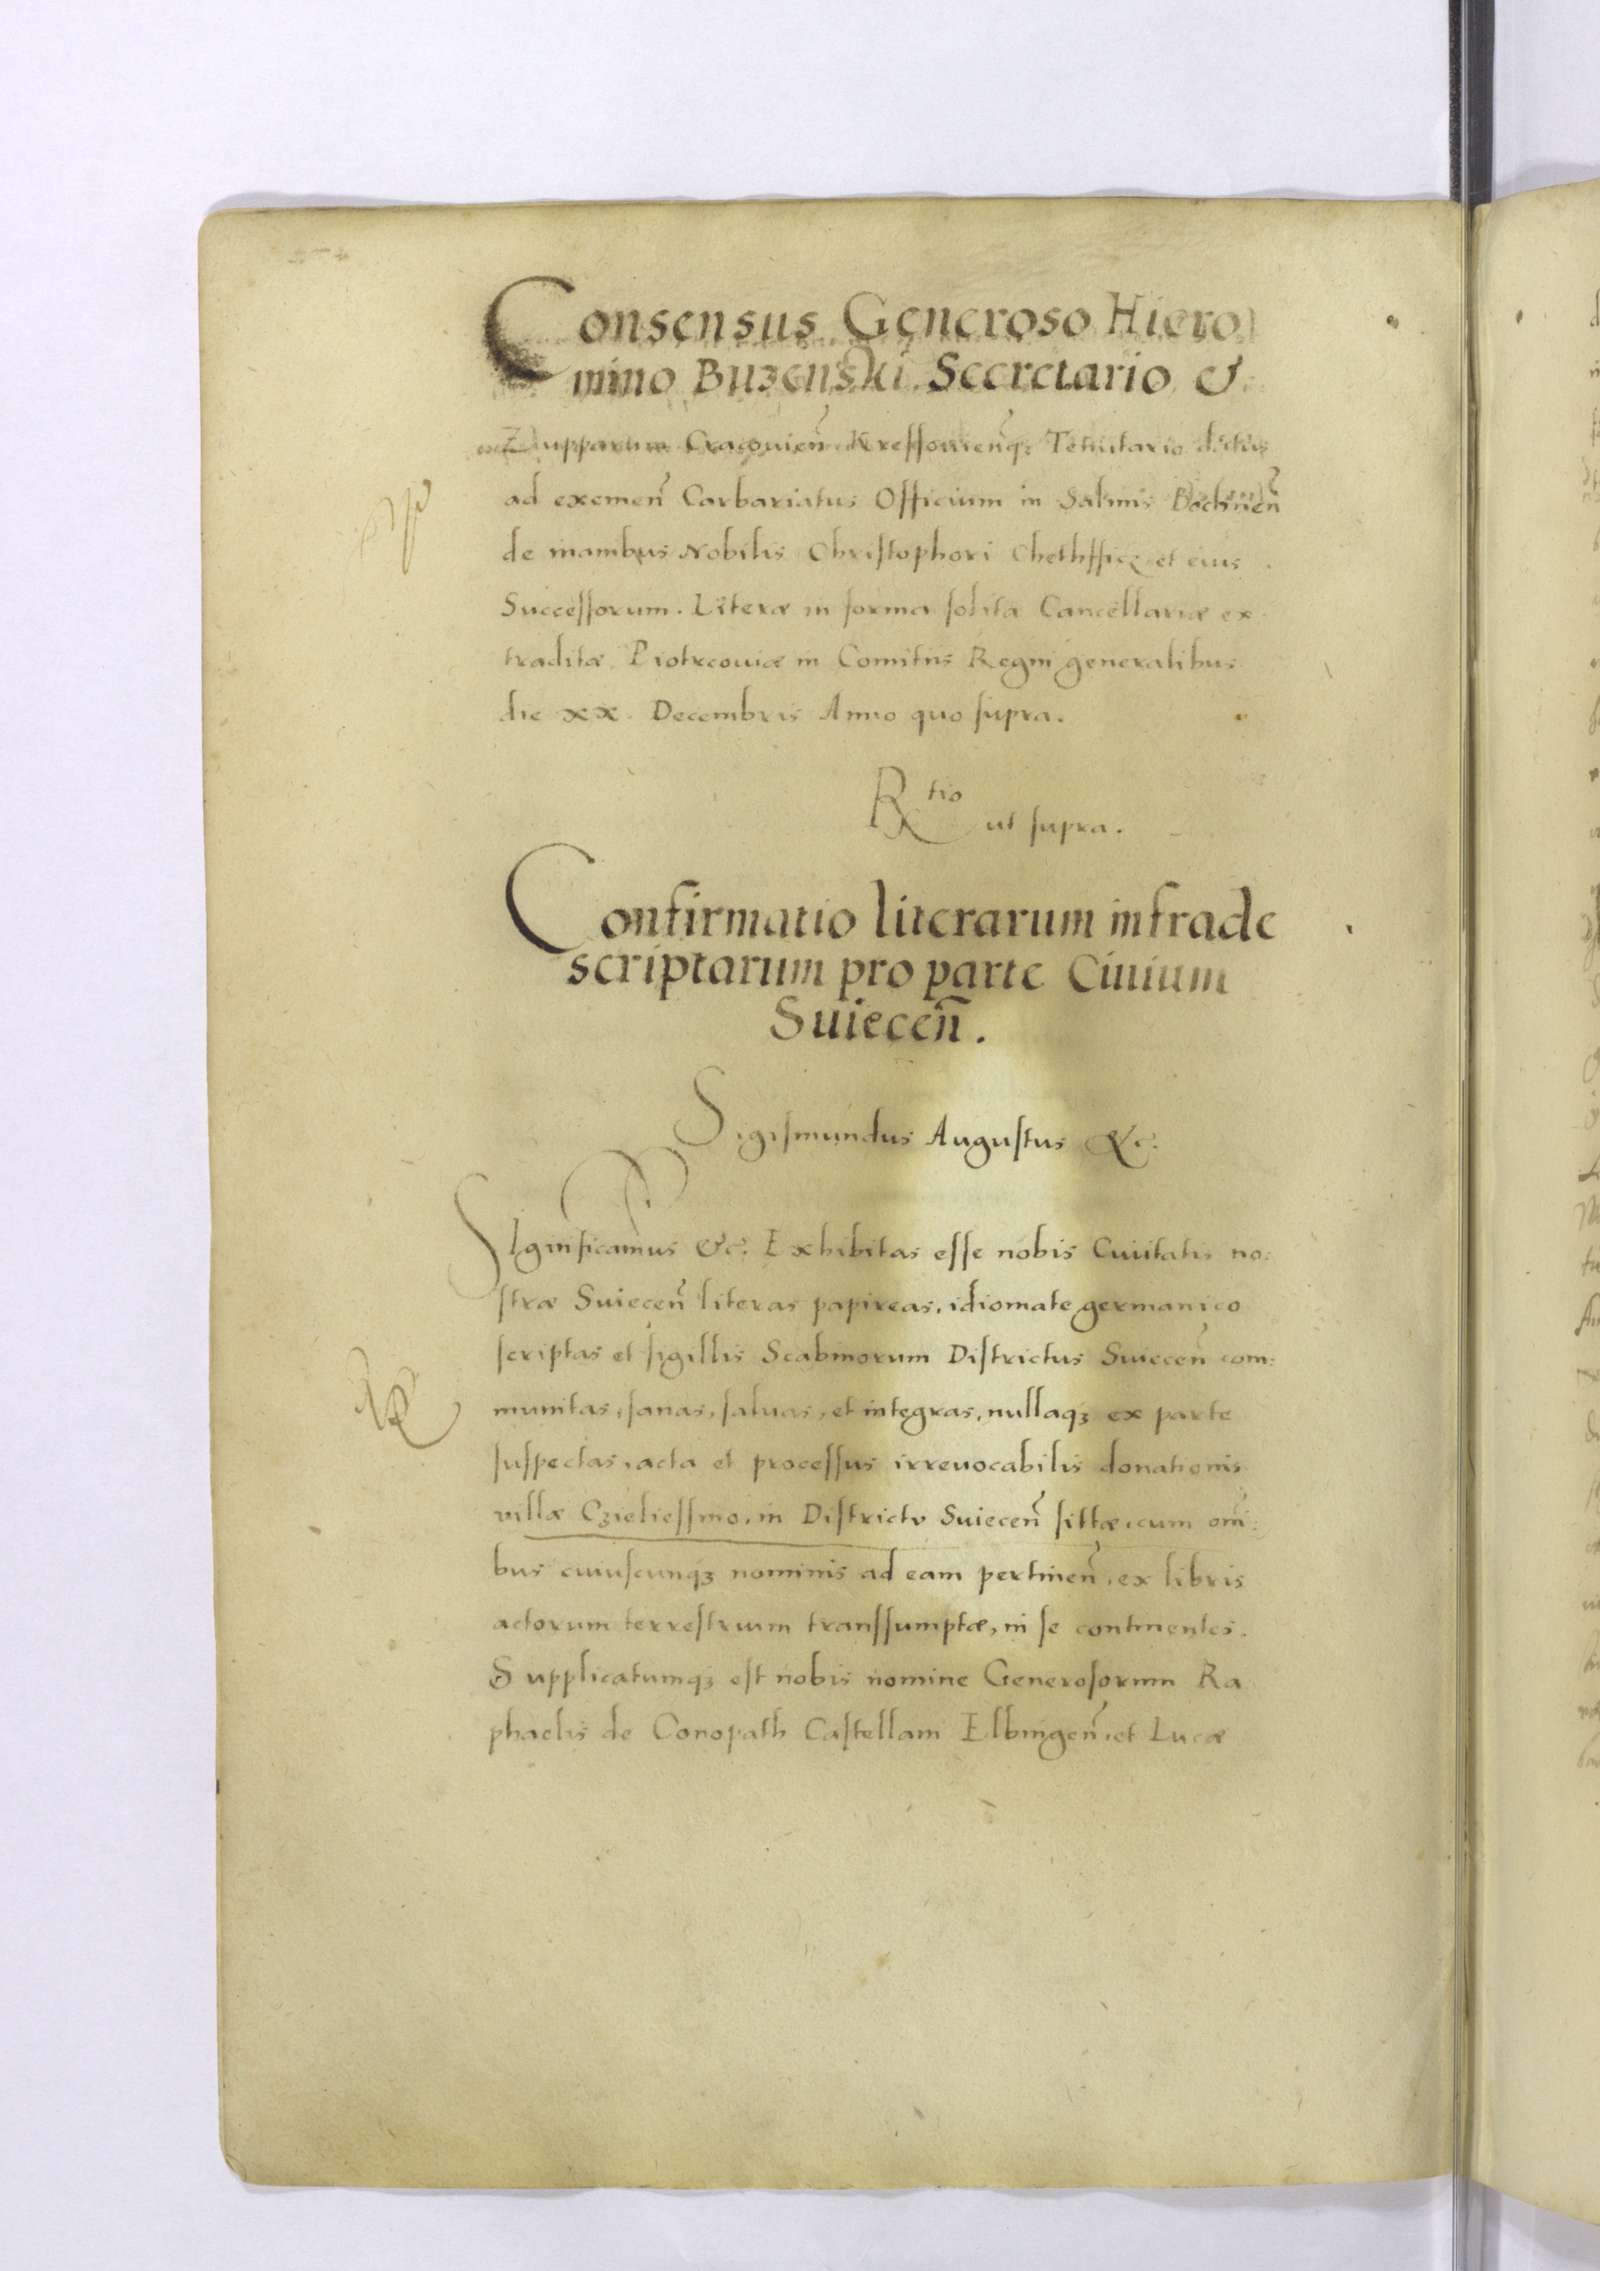 Consensus Generoso Hiero
nimo Buzenski Secretario &
Zupparum Cracouien̄ Kressowienq̨ Tenutario d
ad exemen̄ Carbariatus Officium in Salinis Bochnen̄
de manibus Nobilis Christophori et eius
Successorum. Literæ in forma solita Cancellariæ ex
traditæ Piotrcouiæ in Comitijs Regni generalibus
die xx Decembris Anno quo supra.
Rtio
ut supra.
Confirmatio literarum infrade
scriptarum pro parte Ciuium
Suiecen̄.
Sigismundus Augustus &c.
Significamus &c. Exhibitas esse nobis Ciuitatis no:
stræ Suiecen̄ literas papireas, idiomate germanico
scriptas et sigillis Scabinorum Districtus Suiecen̄ com:
munitas, sanas, saluas, et integras, nullaqꝫ ex parte
suspectas, acta et processus irreuocabilis donationis
villæ Czieliessmo, in Districtu Suiecen̄ sittæ, cum om̄i:
bus cuiuscunqꝫ nominis ad eam pertinen̄, ex libris
actorum terrestrium transsumptæ, in se continentes.
Supplicatumqꝫ est nobis nomine Generosorum Ra
phaelis de Conopath Castellani Elbingen̄, et Lucæ